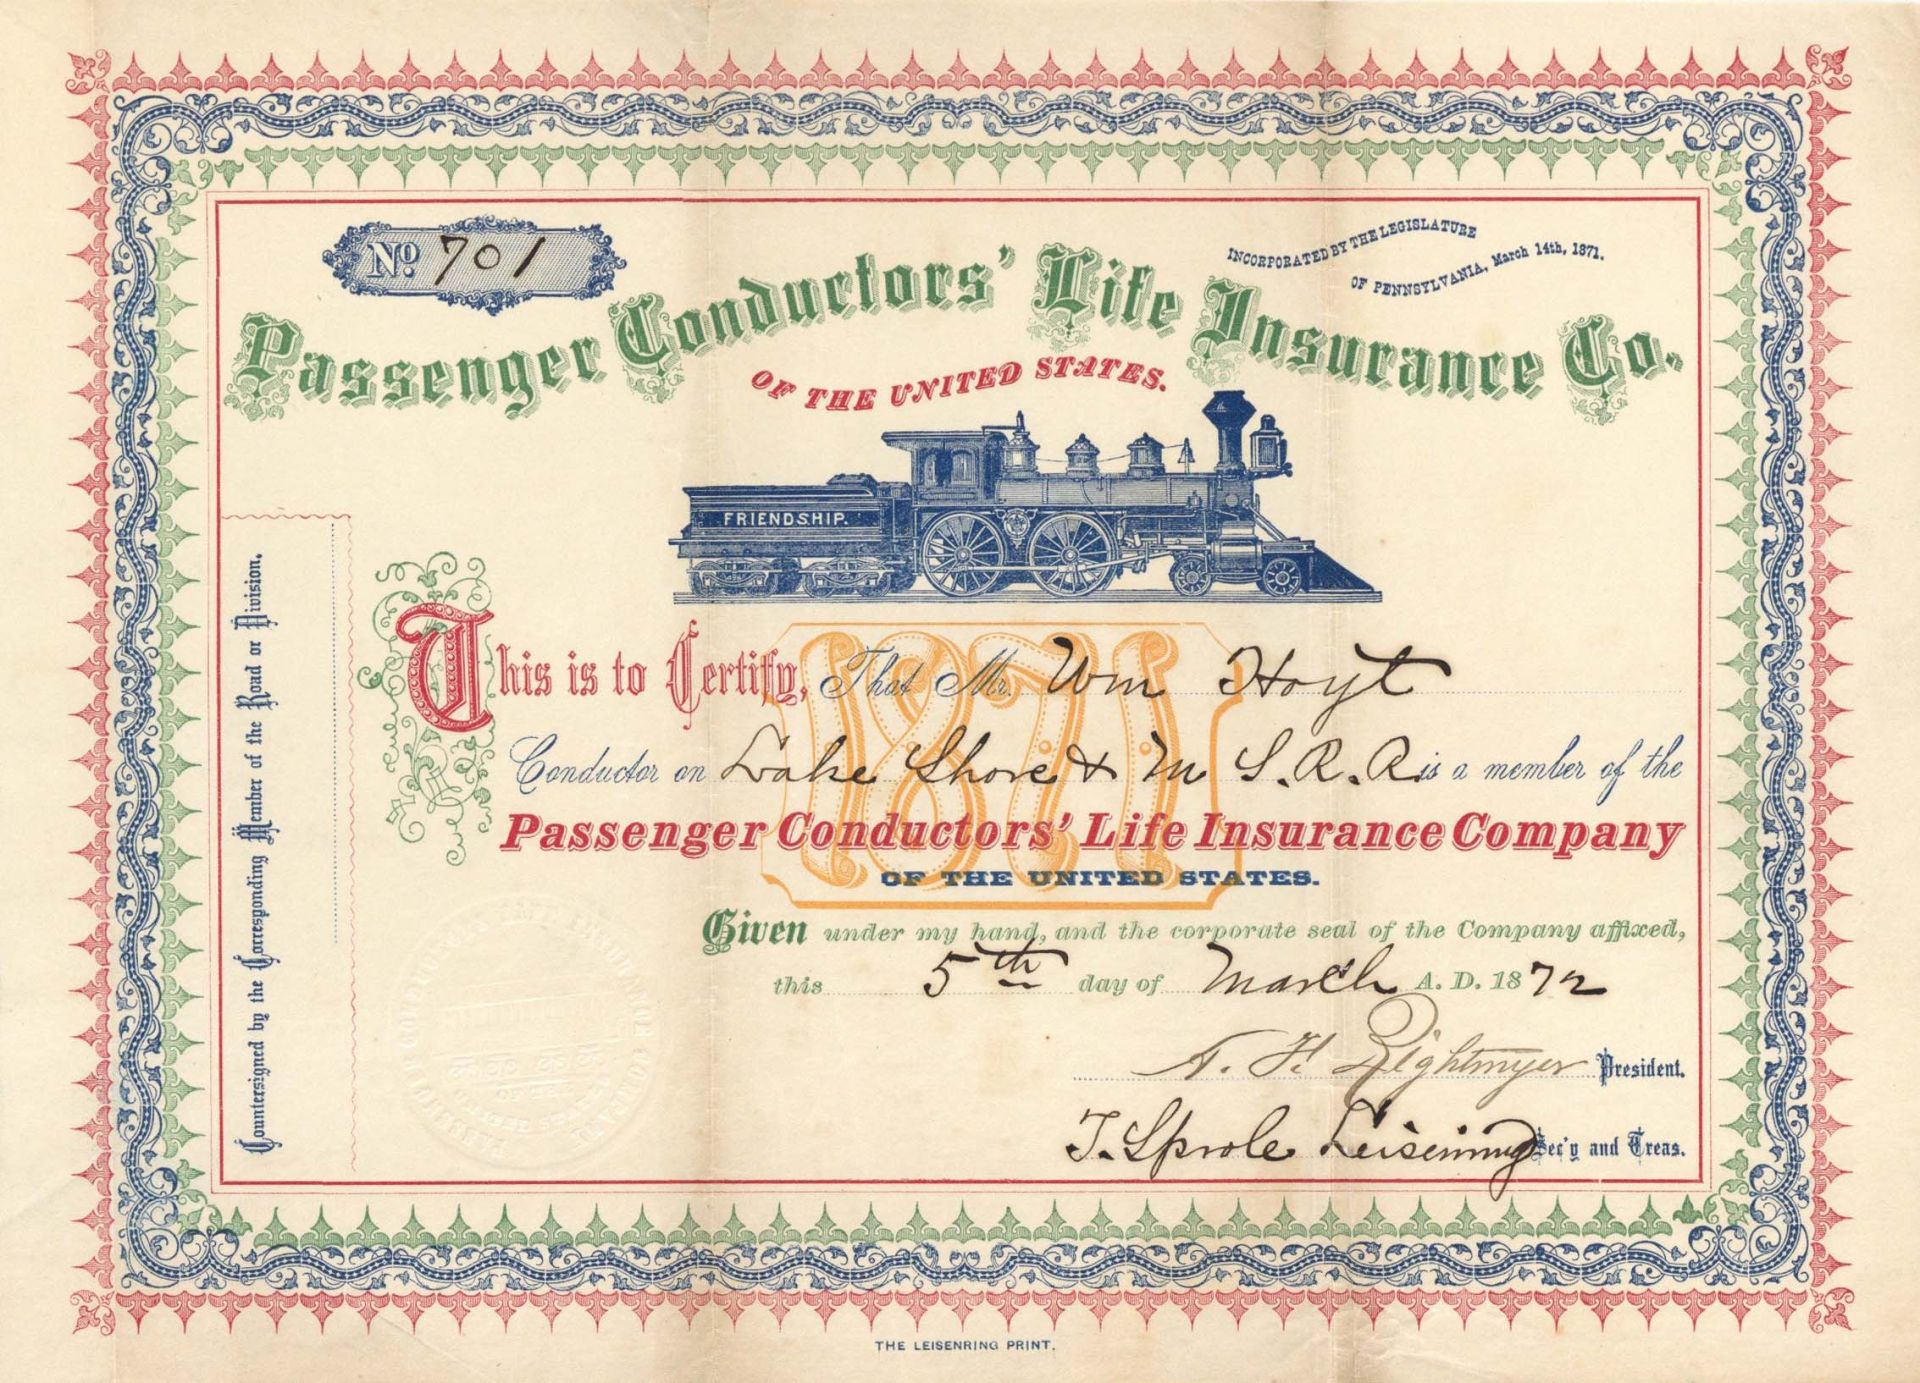 No. 701
INCORPORATED BY THE LEGISLATURE
OF PENNSYLVANIA, March 14th, 1871.
Passenger Conductors' Life Insurance Co.
OF THE UNITED STATES.
FRIENDSHIP.
1871
This is to Certify, That Mr. Wm Hoyt
Conductor on Lake Shore & M S. R. R. is a member of the
Passenger Conductors' Life Insurance Company
OF THE UNITED STATES.
Given under my hand, and the corporate seal of the Company affixed,
this 5th day of March A. D. 1872
Rightmyer President.
T. Sprole Leisenring Sec'y and Treas.
Countersigned by the Corresponding Member of the Road or Division.
THE LEISENRING PRINT.